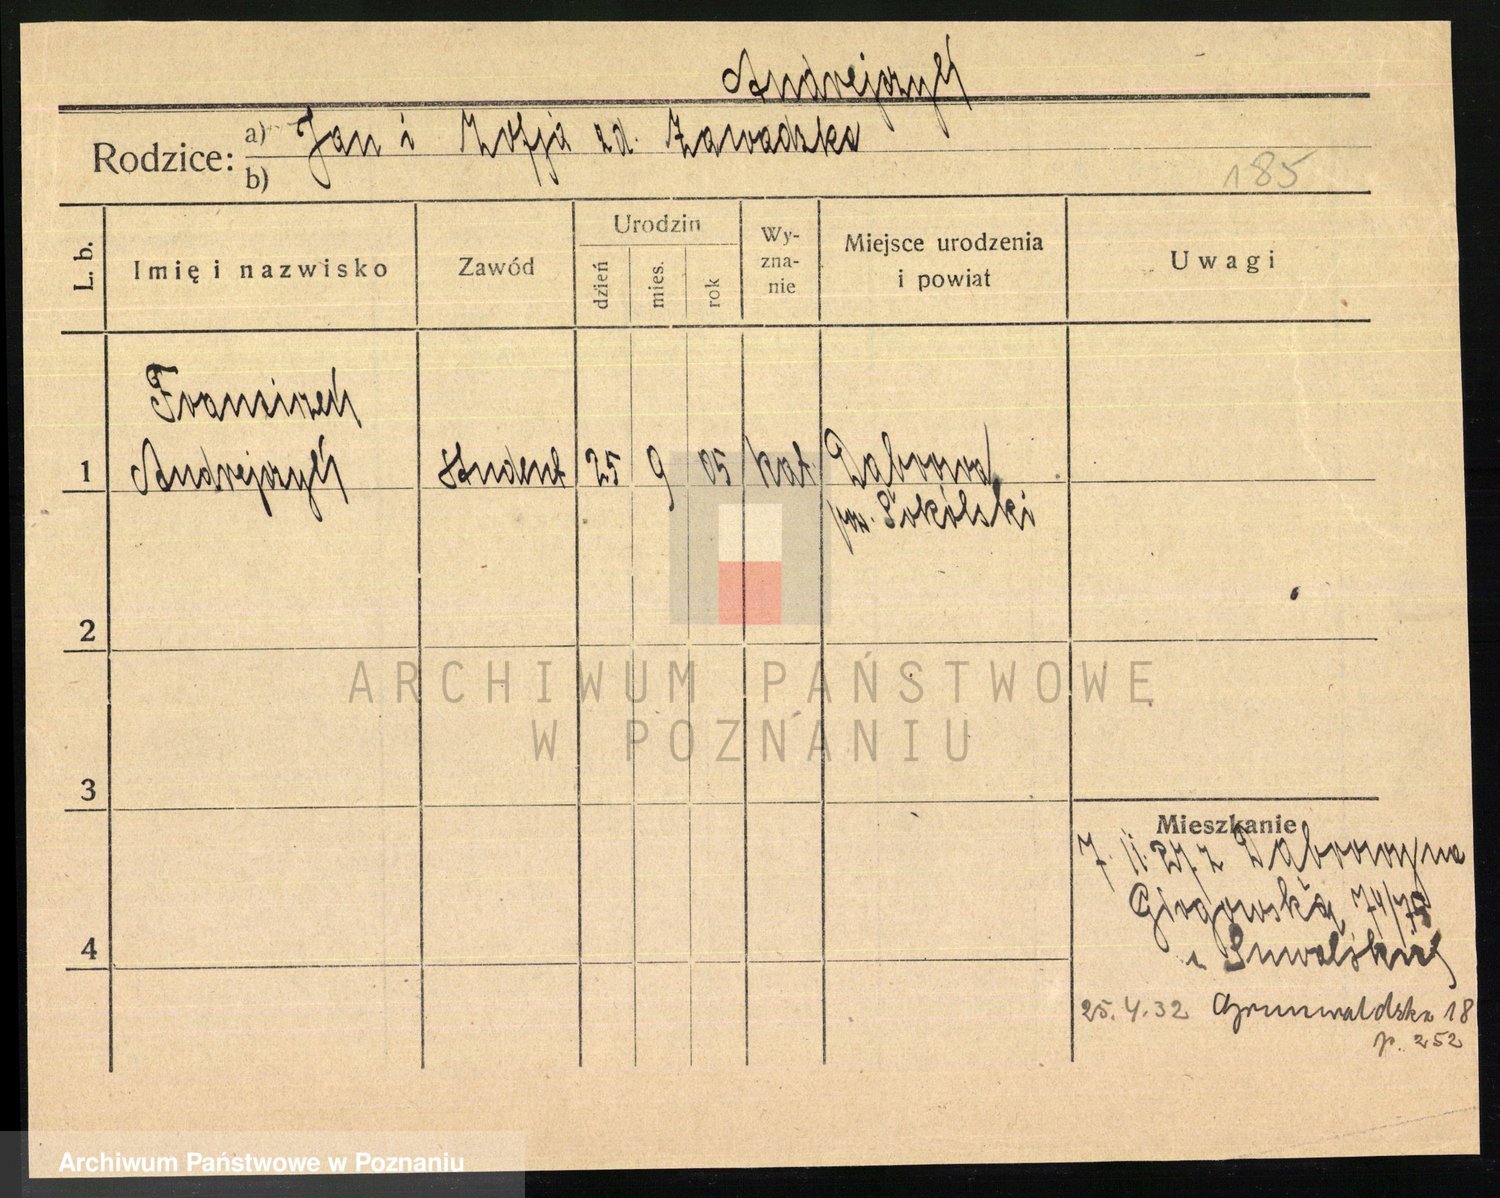 Andrejczyk
Rodzice: a) Jan i Zofja zd. Zawadzka
b)
185
L. b.
Imię i nazwisko
Zawód
Urodzin
dzień
mies.
rok
Wy-
zna-
nie
Miejsce urodzenia
i powiat
Uwagi
Franciszek
1 Andrejczyk Student 25 9 05 kat. Dąbrowa
pow. Sokólski
2
3
4
Mieszkanie
7. 11. z Dąbrowy na
74/75
u
25. 4. 32 Grunwaldska 18
p. 252
ARCHIWUM PAŃSTWOWE
W POZNANIU
Archiwum Państwowe w Poznaniu